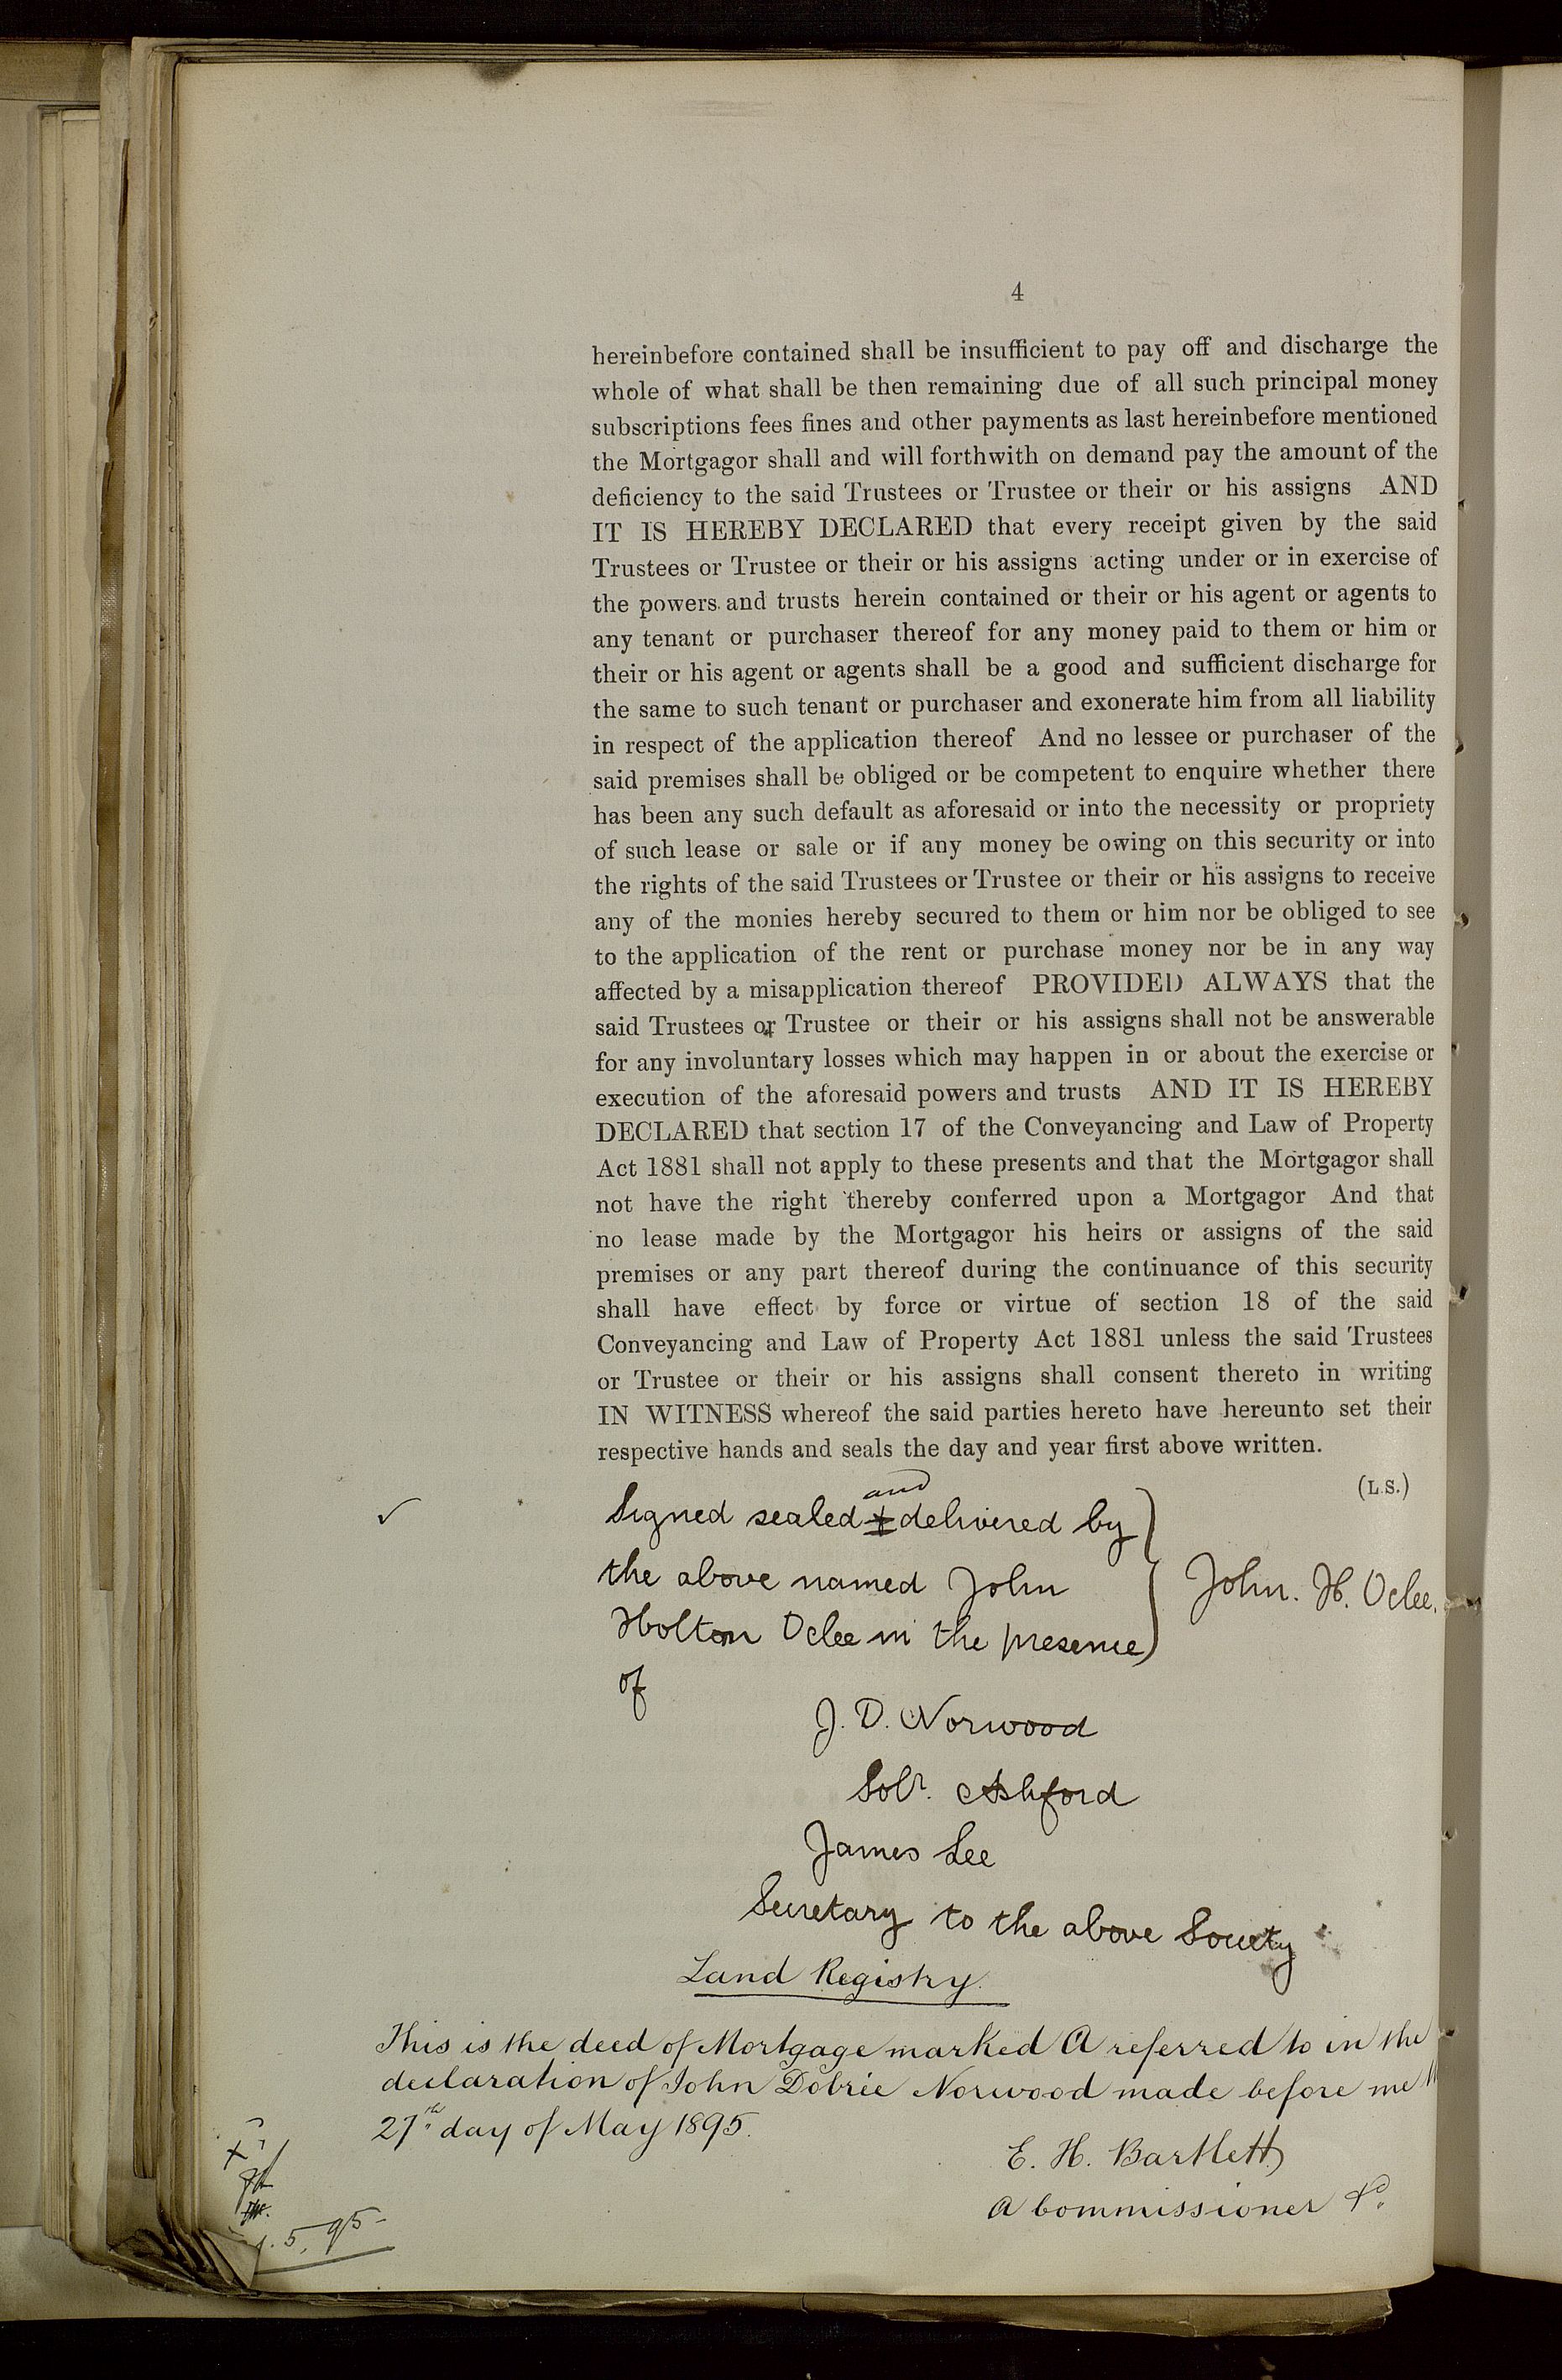 4
hereinbefore contained shall be insufficient to pay off and discharge the
whole of what shall be then remaining due of all such principal money
subscriptions fees fines and other payments as last hereinbefore mentioned
the Mortgagor shall and will forthwith on demand pay the amount of the
deficiency to the said Trustees or Trustee or their or his assigns AND
IT IS HEREBY DECLARED that every receipt given by the said
Trustees or Trustee or their or his assigns acting under or in exercise of
the powers and trusts herein contained or their or his agent or agents to
any tenant or purchaser thereof for any money paid to them or him or
their or his agent or agents shall be a good and sufficient discharge for
the same to such tenant or purchaser and exonerate him from all liability
in respect of the application thereof And no lessee or purchaser of the
said premises shall be obliged or be competent to enquire whether there
has been any such default as aforesaid or into the necessity or propriety
of such lease or sale or if any money be owing on this security or into
the rights of the said Trustees or Trustee or their or his assigns to receive
any of the monies hereby secured to them or him nor be obliged to see
to the application of the rent or purchase money nor be in any way
affected by a misapplication thereof PROVIDED ALWAYS that the
said Trustees or Trustee or their or his assigns shall not be answerable
for any involuntary losses which may happen in or about the exercise or
execution of the aforesaid powers and trusts AND IT IS HEREBY
DECLARED that section 17 of the Conveyancing and Law of Property
Act 1881 shall not apply to these presents and that the Mortgagor shall
not have the right thereby conferred upon a Mortgagor And that
no lease made by the Mortgagor his heirs or assigns of the said
premises or any part thereof during the continuance of this security
shall have effect by force or virtue of section 18 of the said
Conveyancing and Law of Property Act 1881 unless the said Trustees
or Trustee or their or his assigns shall consent thereto in writing
IN WITNESS whereof the said parties hereto have hereunto set their
respective hands and seals the day and year first above written.
(L.S.)
Signed sealed and delivered by
the above named John
Holton Oclee in the presence
of
John. H. Oclee.
J. D. Norwood
Solr. Ashford
James Lee
Secretary to the above Society
Land Registry.
This is the deed of Mortgage marked A referred to in the
declaration of John Dobrée Norwood made before me
27th day of May 1895.
E. H. Bartlett
A Commissioner &c.
5. 95